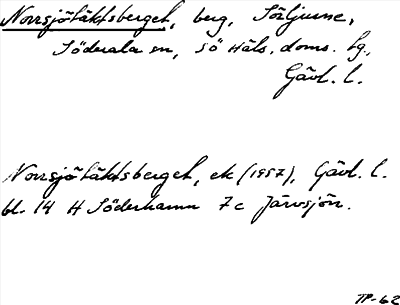 Norrsjötäktsberget, berg, Sörljusne,
Söderala sn, Sö Häls. doms. tg.,
Gävl. l.
Norrsjötäktsberget, ek (1957), Gävl. l.
bl. 14 H Söderhamn 7c Järvsjön.
TP-62